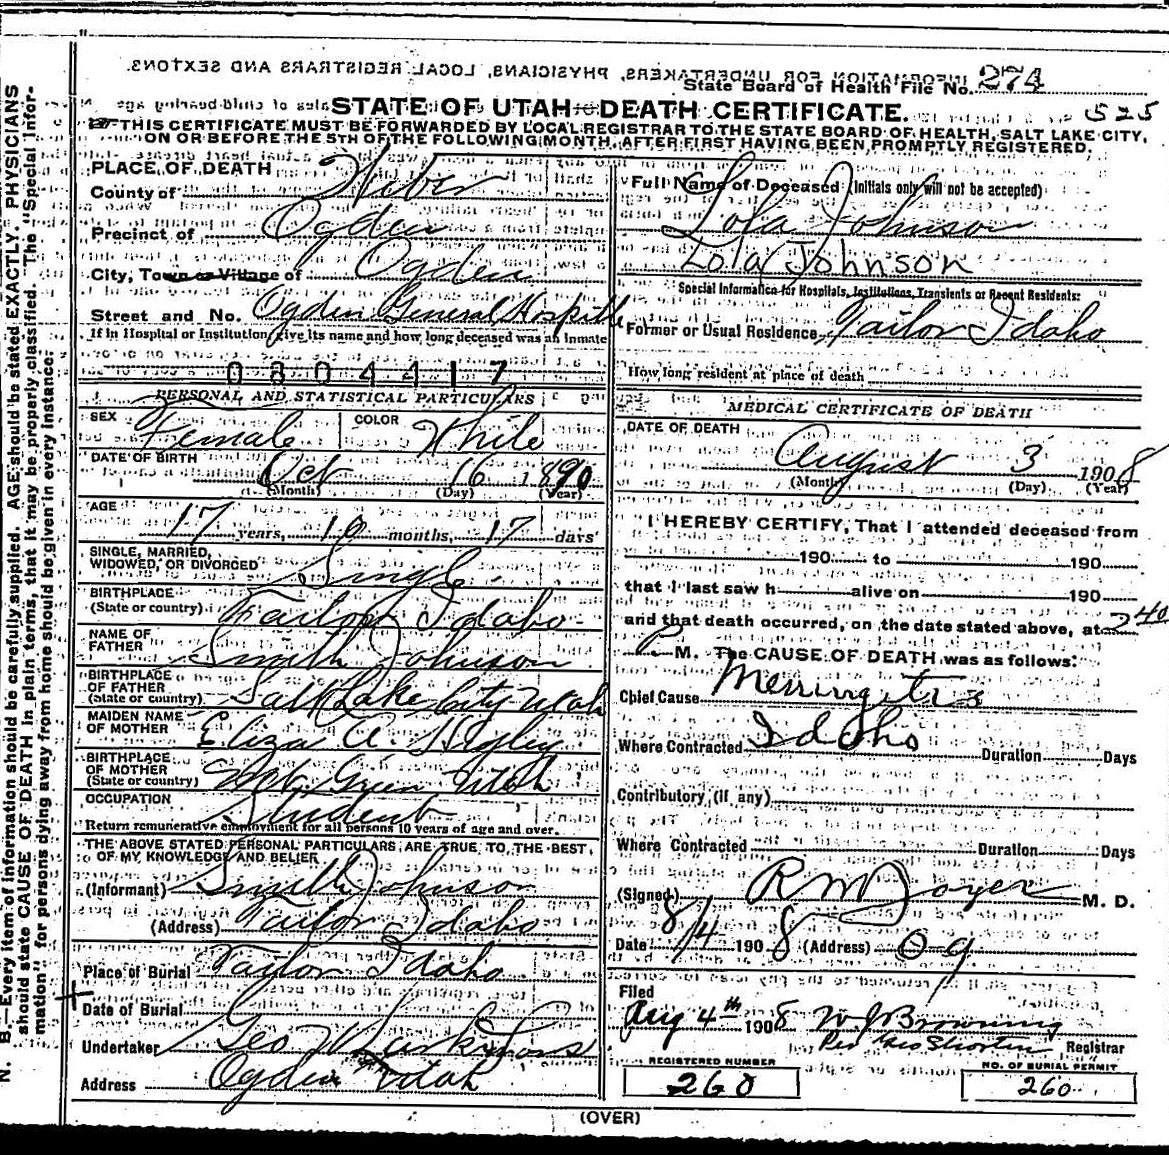 INFORMATION FOR UNDERTAKERS, PHYSICIANS, LOCAL REGISTRARS AND SEXTONS.
State Board of Health File No. 274
STATE OF UTAH—DEATH CERTIFICATE. 525
THIS CERTIFICATE MUST BE FORWARDED BY LOCAL REGISTRAR TO THE STATE BOARD OF HEALTH, SALT LAKE CITY,
ON OR BEFORE THE 5TH OF THE FOLLOWING MONTH, AFTER FIRST HAVING BEEN PROMPTLY REGISTERED.
PLACE OF DEATH
County of Weber
Precinct of Ogden
City, Town or Village of Ogden
Street and No. Ogden General Hospital
If in Hospital or Institution give its name and how long deceased was an inmate
0804417
PERSONAL AND STATISTICAL PARTICULARS
SEX Female COLOR White
DATE OF BIRTH Oct 16 1890
(Month) (Day) (Year)
AGE
17 years, 10 months, 17 days
SINGLE, MARRIED,
WIDOWED, OR DIVORCED Single
BIRTHPLACE
(State or country) Tailor Idaho
NAME OF
FATHER Smith Johnson
BIRTHPLACE
OF FATHER
(State or country) Salt Lake City Utah
MAIDEN NAME
OF MOTHER Eliza A. Higley
BIRTHPLACE
OF MOTHER
(State or country) Green Utah
OCCUPATION Student
Return remunerative employment for all persons 10 years of age and over.
THE ABOVE STATED PERSONAL PARTICULARS ARE TRUE TO THE BEST
OF MY KNOWLEDGE AND BELIEF
(Informant) Smith Johnson
(Address) Tailor Idaho
Place of Burial Taylor Idaho
Date of Burial
Undertaker Geo W Larkin Sons
Address Ogden Utah
Full Name of Deceased (Initials only will not be accepted)
Lola Johnson
Lola Johnson
Special Information for Hospitals, Institutions, Transients or Recent Residents:
Former or Usual Residence Tailor Idaho
How long resident at place of death
MEDICAL CERTIFICATE OF DEATH
DATE OF DEATH
August 3 1908
(Month) (Day) (Year)
I HEREBY CERTIFY, That I attended deceased from
190 to 190
that I last saw h alive on 190
and that death occurred, on the date stated above, at 240
P. M. The CAUSE OF DEATH was as follows:
Chief Cause Menningitis
Where Contracted Idaho Duration Days
Contributory (if any)
Where Contracted Duration Days
(Signed) R M Joyce M. D.
Date 8/4 1908 (Address) Og
Filed
Aug 4th 1908 W J Browning
Per Geo Shorten Registrar
REGISTERED NUMBER
260
NO. OF BURIAL PERMIT
260
(OVER)
N. B.—Every item of information should be carefully supplied. AGE should be stated EXACTLY. PHYSICIANS
should state CAUSE OF DEATH in plain terms, that it may be properly classified. The "Special Infor-
mation" for persons dying away from home should be given in every instance.